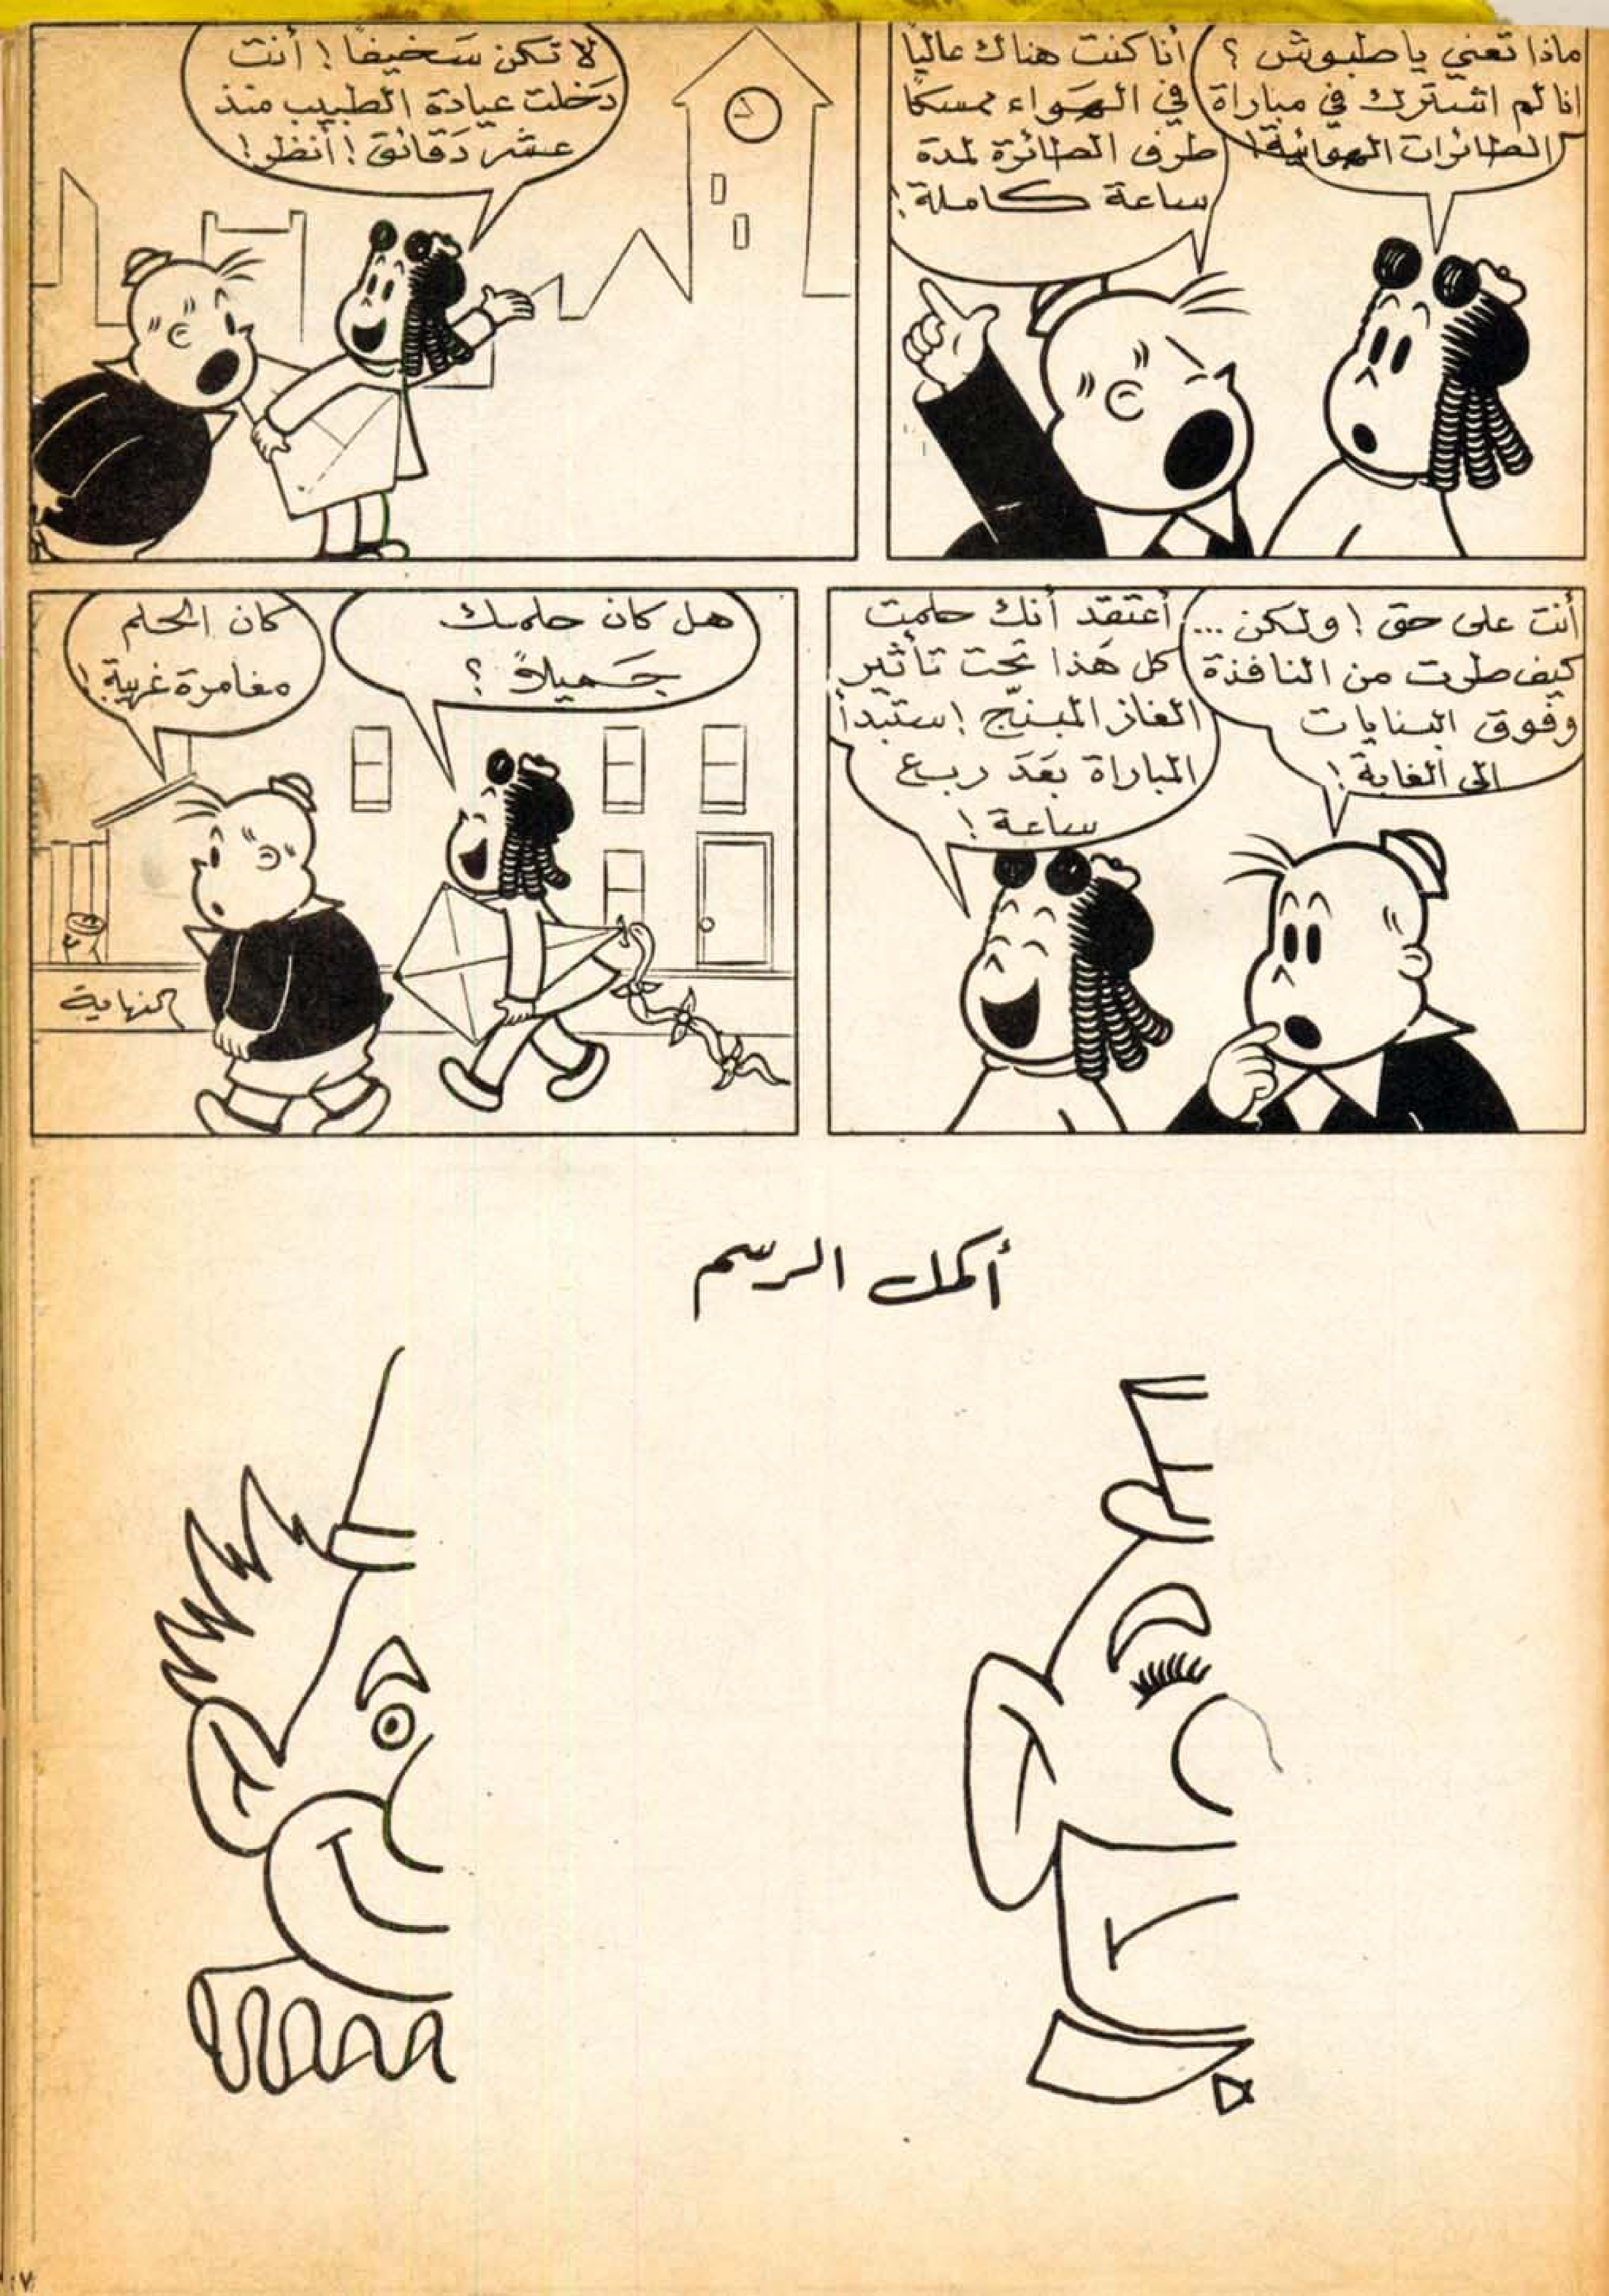 ماذا تعني يا طبوش ؟
انا لم اشترك في مباراة
الطائرات الهوائية !
أنا كنت هناك عاليًا
في الهَواء ممسكًا
طرف الطائرة لمدة
ساعة كاملة !
لا تكن سَخيفًا ! أنت
دَخلت عيادة الطبيب منذ
عشر دَقائق ! أنظر !
أنت على حق ! ولكن ...
كيف طرت من النافذة
وفوق البنايات
الى الغابة !
أعتقد أنك حلمت
كل هَذا تحت تأثير
الغاز المبنّج ! ستبدأ
المباراة بَعدَ ربع
ساعة !
هل كان حلمك
جَميلاً ؟
كان الحلم
مغامرة غريبة !
النهاية
أكمل الرسم